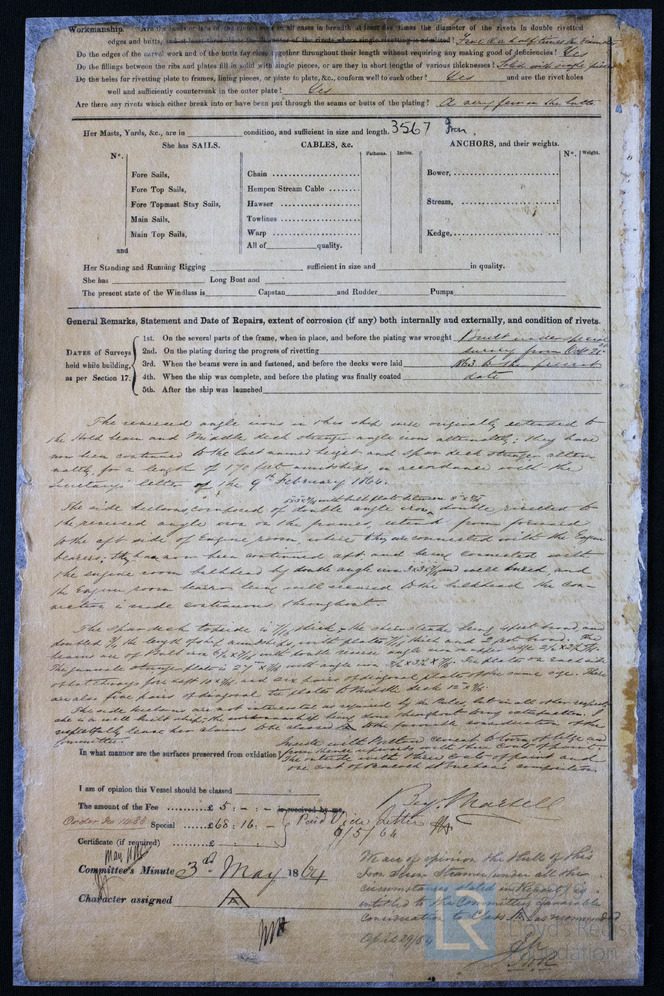 Workmanship. Are the lands or laps of the clencherwork in all cases in breadth at least five times the diameter of the rivets in double rivetted
edges and butts, and at least three times the diameter of the rivets where single rivetting is admitted?
Do the edges of the carvel work and of the butts lay close together throughout their length without requiring any making good of deficiencies? Yes
Do the fillings between the ribs and plates fill in solid with single pieces, or are they in short lengths of various thicknesses? Solid with single pieces
Do the holes for rivetting plate to frames, lining pieces, or plate to plate, &c., conform well to each other? Yes and are the rivet holes
well and sufficiently countersunk in the outer plate? Yes
Are there any rivets which either break into or have been put through the seams or butts of the plating? A very few in the butts
Her Masts, Yards, &c., are in condition, and sufficient in size and length. 3567 Iron.
She has SAILS. CABLES, &c. ANCHORS, and their weights.
N°. Fathoms. Inches. N°. Weight.
Fore Sails, Chain Bower,
Fore Top Sails, Hempen Stream Cable
Fore Topmast Stay Sails, Hawser Stream,
Main Sails, Towlines
Main Top Sails, Warp Kedge,
and All of quality.
Her Standing and Running Rigging sufficient in size and in quality.
She has Long Boat and
The present state of the Windlass is Capstan and Rudder Pumps
General Remarks, Statement and Date of Repairs, extent of corrosion (if any) both internally and externally, and condition of rivets.
DATES of Surveys held while building, as per Section 17.
1st. On the several parts of the frame, when in place, and before the plating was wrought Built under special
2nd. On the plating during the progress of rivetting survey from Octr 21st
3rd. When the beams were in and fastened, and before the decks were laid 1863 to the present
4th. When the ship was complete, and before the plating was finally coated date
5th. After the ship was launched
The reversed angle irons in this ship were originally extended to
the Hold beam and Middle deck stringer angle iron alternately; they have
now been continued to the last named height and spar deck stringer alter-
nately, for a length of 170 feet amidships, in accordance with the
Secretary's letter of the 9th February 1864.
The side keelsons composed of double angle iron double rivetted to
the reversed angle iron on the frames, extend from forward
to the aft side of Engine room where they are connected with the Engine
bearers; they have now been continued aft and been connected with
the engine room bulkhead by double angle iron and well kneed, and
the Engine room bearers being well secured to the bulkhead the con-
nection is made continuous throughout.
The spar deck topside is thick, the sheerstrake being 3 feet broad and
doubled the length of ship amidships with plates thick and broad. The
beams are of Bulb iron with double reverse angle iron on upper edge
The gunwale stringer plate is 27 with angle iron Tie plates on each side
of hatchways fore & aft and six pairs of diagonal plates of the same size. There
are also five pairs of diagonal tie plates to Middle deck
The side keelsons are not intercostal as required by the Rules but in all other respects
she is a well built ship; the workmanship being done throughout being satisfactory. I
respectfully leave her claims to be classed to the favourable consideration of the
Committee.
In what manner are the surfaces preserved from oxidation? Inside with Portland cement to turn of bilge and
from thence upwards with three coats of paint.
The outside with three coats of paint and
one coat of composition
I am of opinion this Vessel should be classed
The amount of the Fee £ 5 : - : - is received by me, Bey. Martell
Special £68 : 16 : - Paid Vide Letter
Certificate (if required) £ : 9/5/64
Committee's Minute 3rd May 1864
Character assigned A
We are of opinion the Hull of this
Iron Screw Steamer under all the
circumstances stated in Report is
entitled to the Committee's favorable
consideration to Class as recommended
April 29/64
LR
Lloyd's Register
Foundation